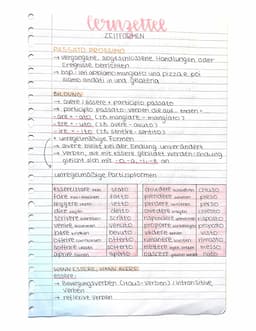 lernzettel
ZEITFORMEN
PASSATO PROSSIMO
→ vergangene, abgeschlossene Handlungen oder
Ereignisse berichten
→ bsp.: ieri abbiamo mangiato una pizza e poi
siamo andati in una gelateria
BILDUNG:
→ avere / essere + participio passato
→ participio passato: verben die auf... enden =...
-are → -ato (zB mangiare - mangiato)
-ere → -uto (zB avere - avuto)
-ire → -ito (zB sentire - sentito)
+ unregelmäßige Formen
→ avere bleibt bei der Endung unverändert
→ Verben, die mit essere gebildet werden: Endung
gleicht sich mit -o, -a, -i, -e an
unregelmäßige Partizipformen
essere/stare stato chiudere chiuso
fare fatto prendere preso
leggere letto perdere perso
dire detto chiedere chiesto
scrivere scritto rispondere risposto
venire venuto proporre proposto
bere bevuto vedere visto
offrire offerto rimanere rimasto
soffrire sofferto mettere messo
aprire aperto nascere nato
WANN ESSERE, WANN AVERE?
essere:
→ Bewegungsverben (raus-verben) / intransitive
verben
→ reflexive verben